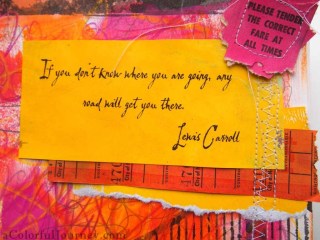 PLEASE TENDER
THE CORRECT
FARE AT
ALL TIMES
If you don't know where you are going, any
road will get you there.
Lewis Carroll
aColorfulJourney.com